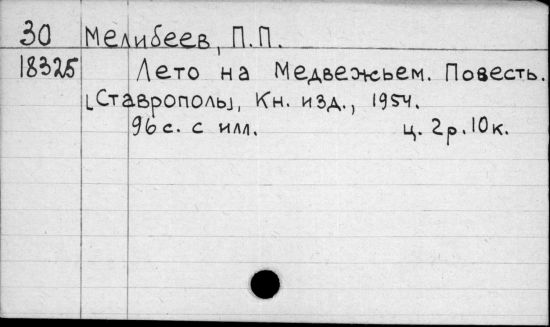 30 Мелибеев, П.П.
18325 Лето на Медвежьем. Повесть.
[Ставрополь], Кн. изд., 1954.
96 с. с илл. ц. 2р. 10к.